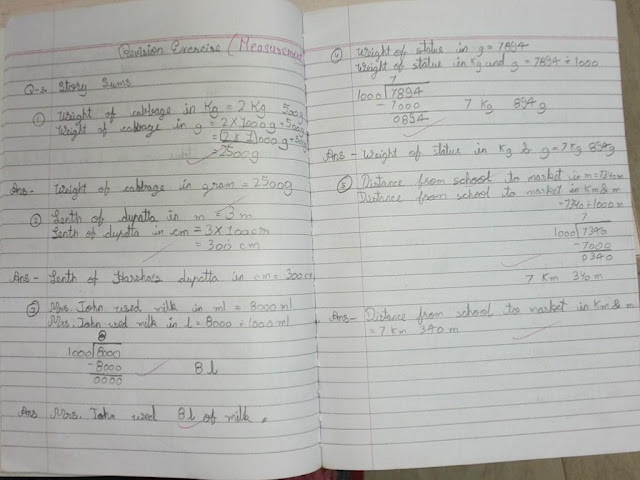 Revision Exercise (Measurement
Q-2. Story Sums
① Weight of cabbage in Kg = 2 Kg 500g
Weight of cabbage in g = 2 x 1000 g + 500g
= 2 x 1000 g + 500
= 2500g
Ans - Weight of cabbage in gram = 2500g
② Lenth of dupatta in m = 3 m
Lenth of dupatta in cm = 3 X 100 cm
= 300 cm
Ans - Lenth of dupatta in cm = 300 cm
③ Mrs. John used milk in ml = 8000 ml
Mrs. John used milk in l = 8000 ÷ 1000 ml
8
1000 8000
- 8000 8 l
0000
Ans Mrs. John used 8 l of milk.
④ Weight of statue in g = 7894
Weight of statue in Kg and g = 7894 ÷ 1000
7
1000 7894
- 7000 7 Kg 894 g
0894
Ans - Weight of statue in Kg & g = 7 Kg 894g
⑤ Distance from school to market in m = 7340 m
Distance from school to market in Km & m
= 7340 ÷ 1000 m
7
1000 7340
- 7000
0340
7 Km 340 m
Ans - Distance from school to market in Km & m
= 7 Km 340 m